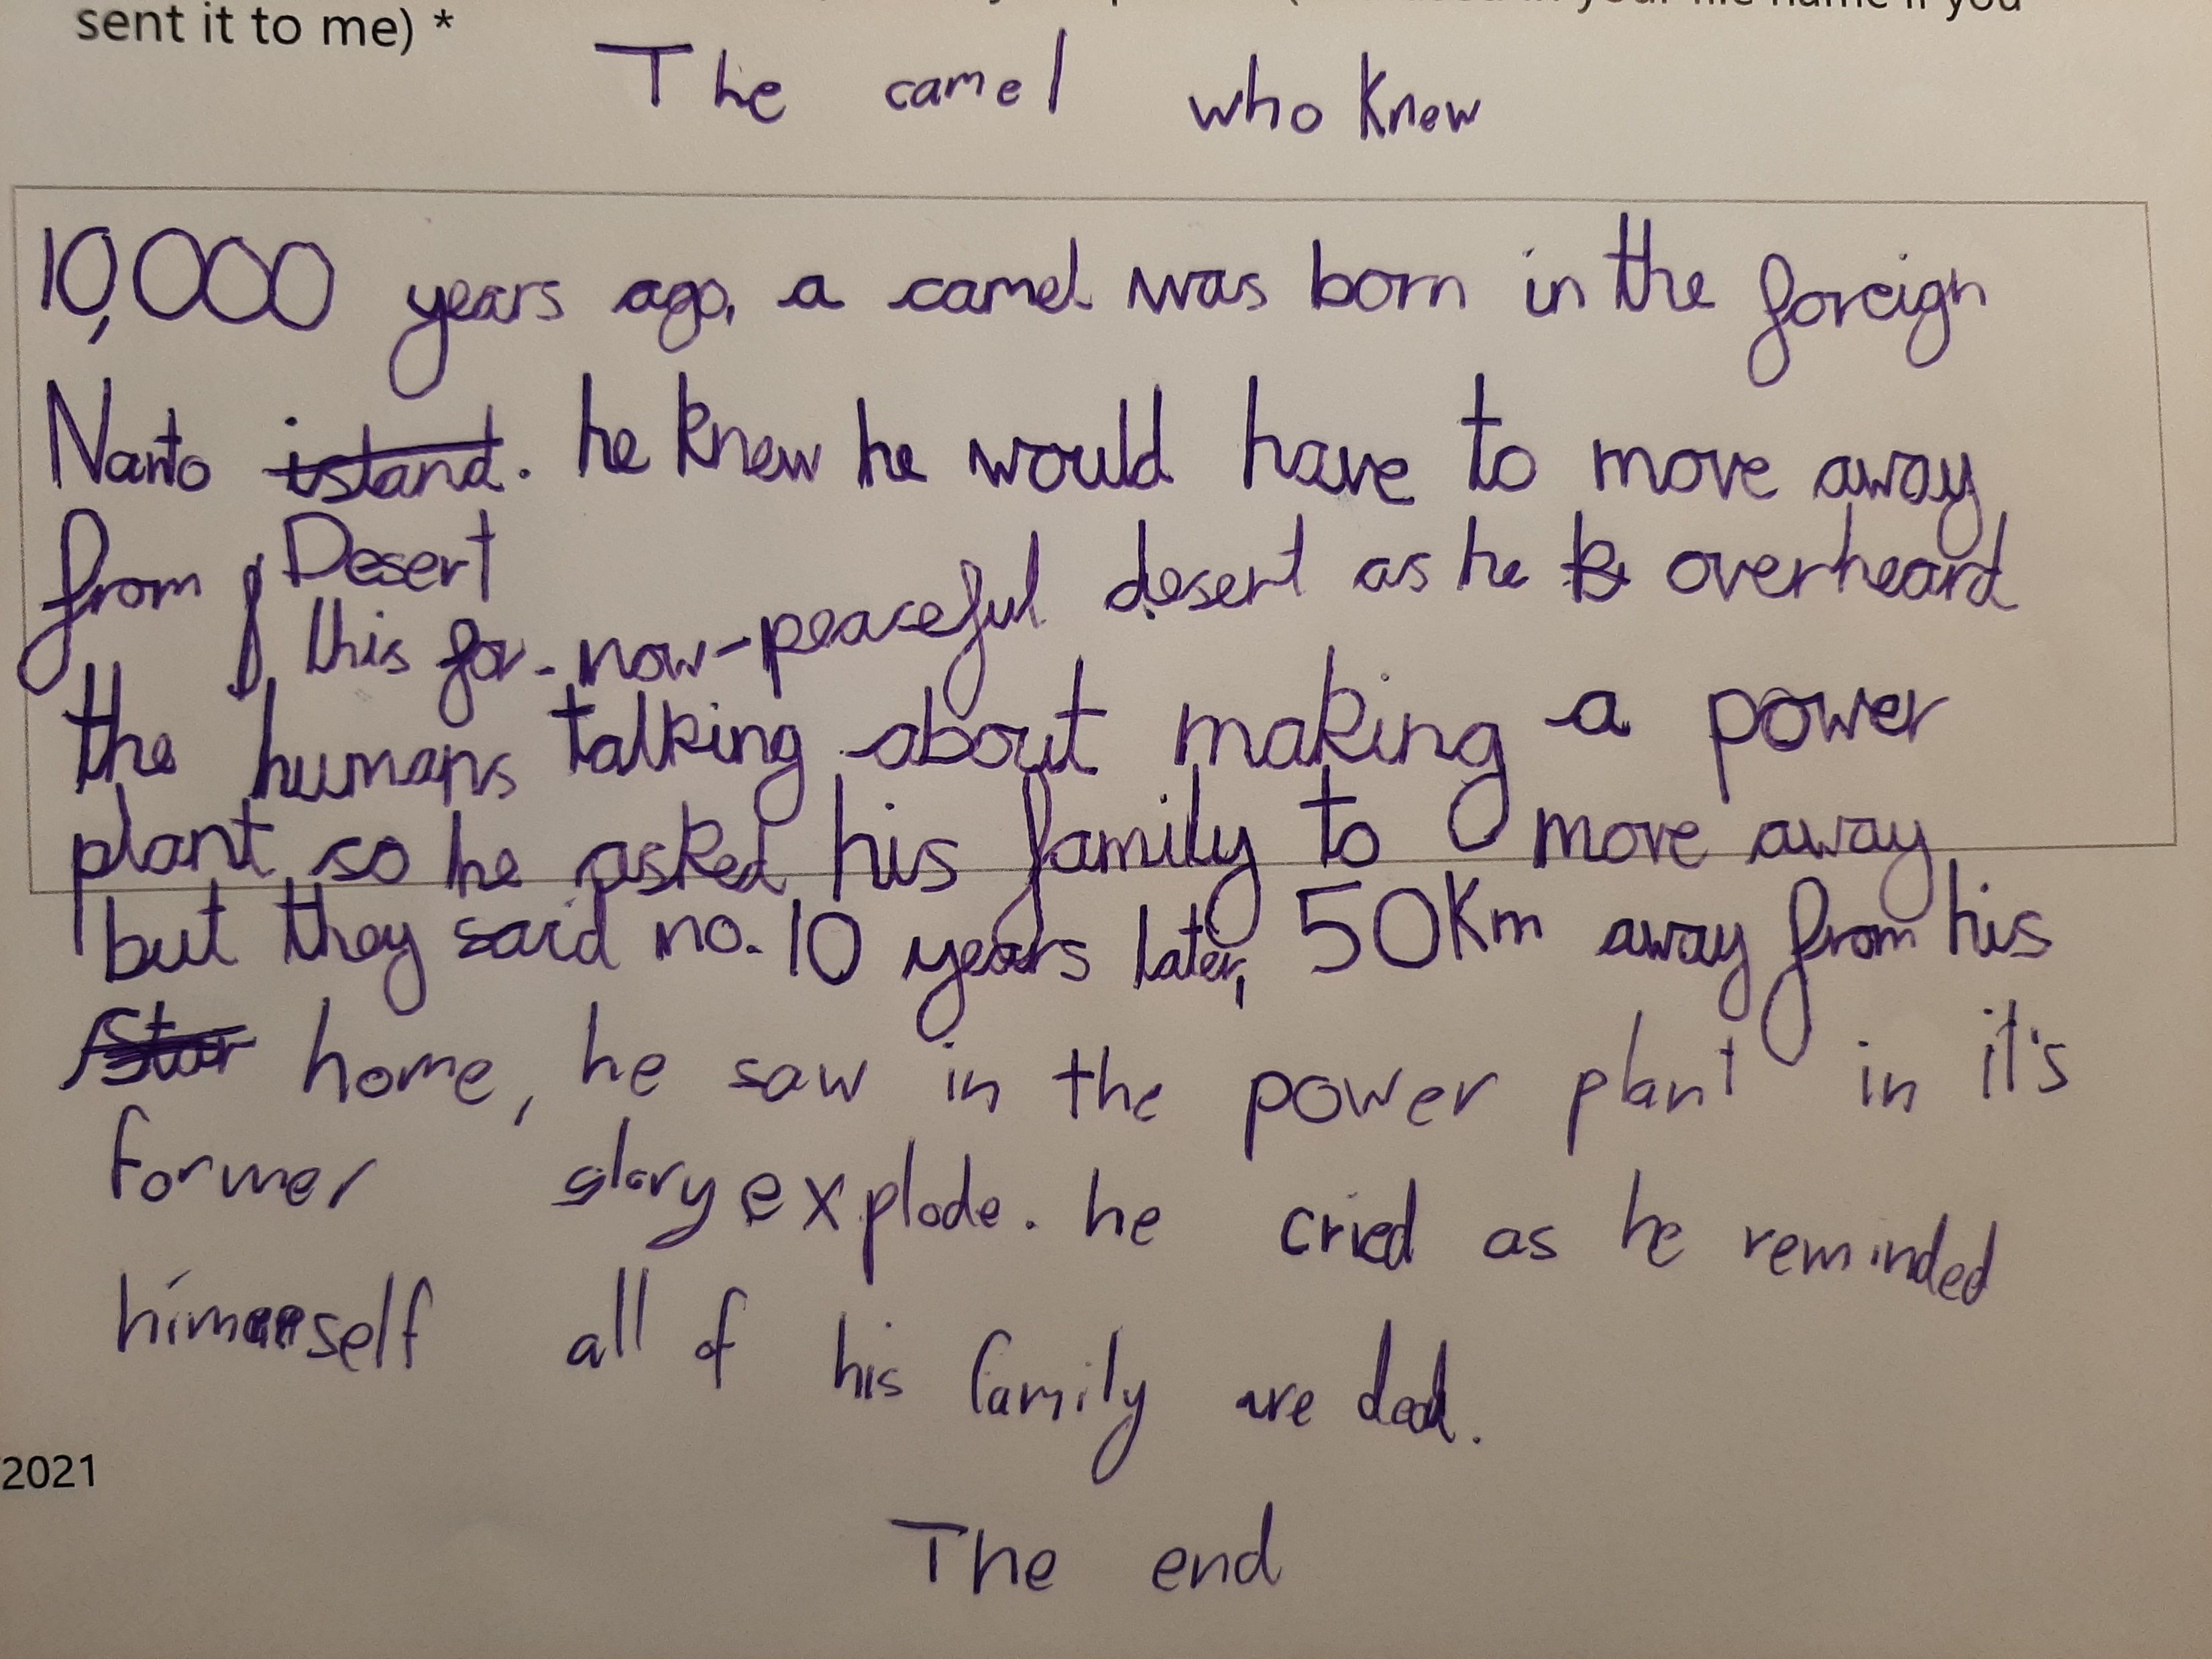 sent it to me) *
The camel who knew
10,000 years ago, a camel was born in the foreign
Nanto island. he knew he would have to move away
Desert
from this for-now-peaceful desert as he overheard
the humans talking about making a power
plant so he asked his family to move away
but they said no. 10 years later, 50Km away from his
Star home, he saw in the power plant in it's
former glory explode. he cried as he reminded
himself all of his family are dead.
2021
The end